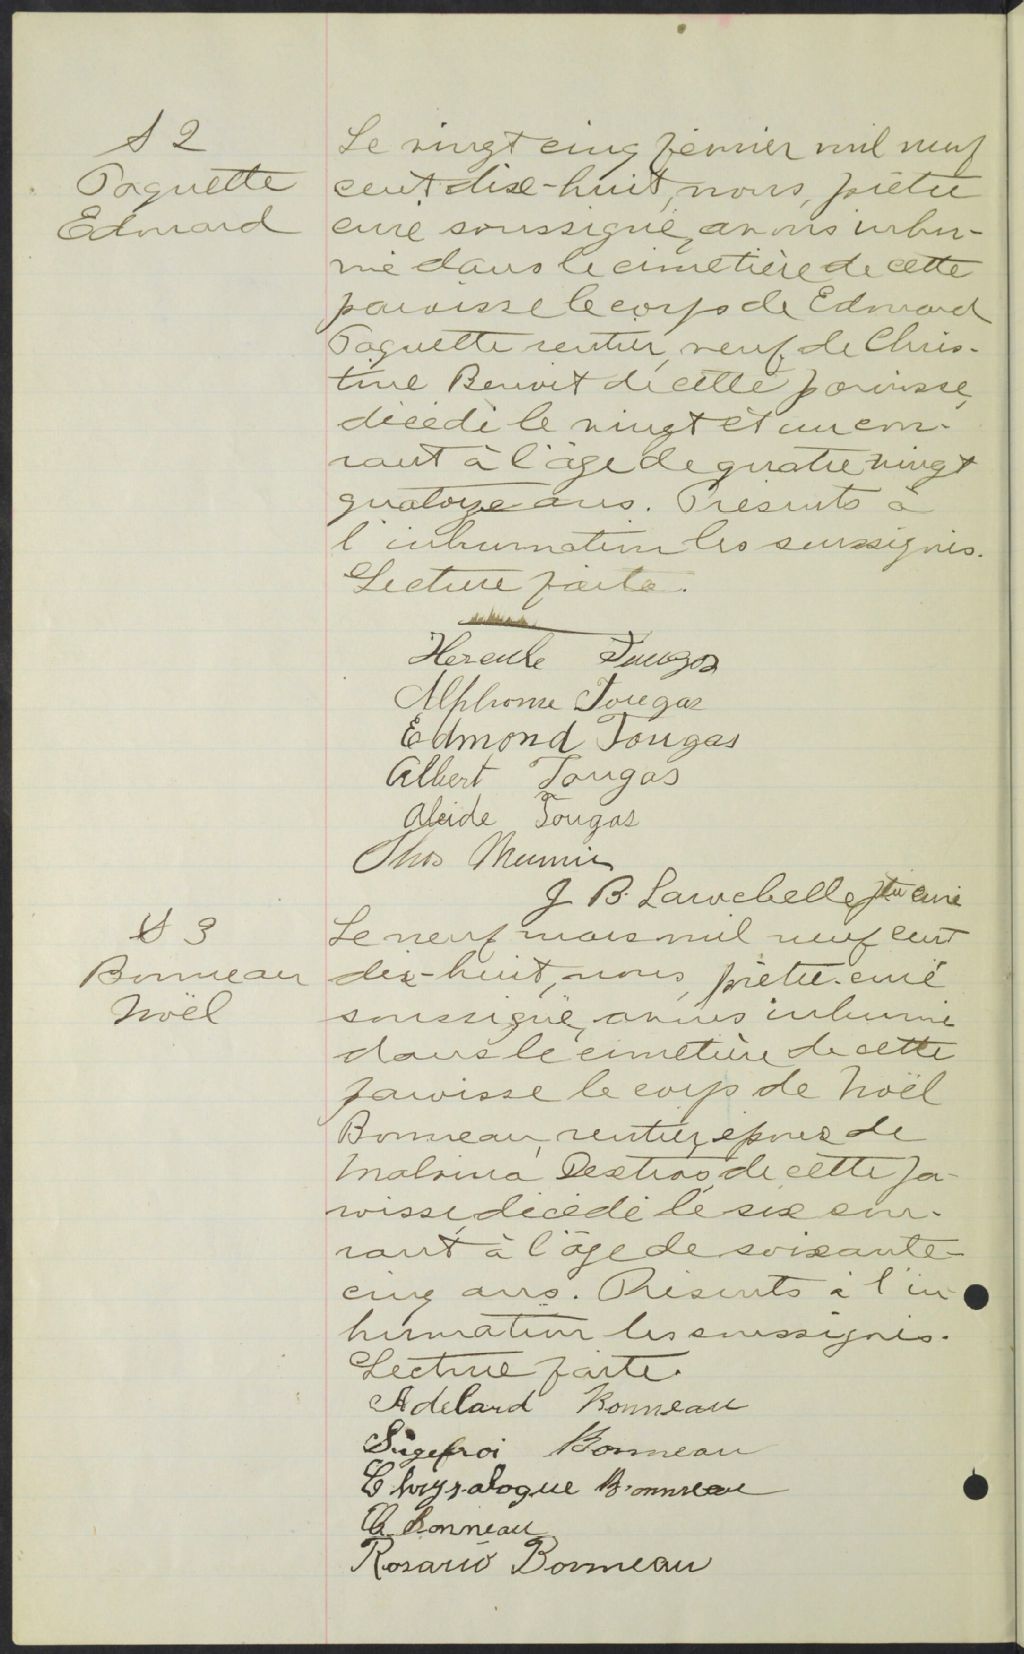 S 2
Paquette
Edouard
Le vingt cinq février mil neuf
cent dix-huit, nous, prêtre
curé soussigné, avons inhu-
mé dans le cimetière de cette
paroisse le corps de Edouard
Paquette rentier, veuf de Chris-
tine Benoit de cette paroisse,
décédé le vingt et un cou-
rant à l'âge de quatre vingt
quatorze ans. Présents à
l'inhumation les soussignés.
Lecture faite.
Hercule Tougas
Alphonse Tougas
Edmond Tougas
Albert Tougas
Alcide Tougas
Thos
J. B. Larochelle ptre curé
S 3
Bonneau
Noël
Le neuf mars mil neuf cent
dix-huit, nous, prêtre-curé
soussigné, avons inhumé
dans le cimetière de cette
paroisse le corps de Noël
Bonneau, rentier, époux de
Malvina Dextras, de cette pa-
roisse, décédé le six cou-
rant à l'âge de soixante-
cinq ans. Présents à l'in
humation les soussignés.
Lecture faite.
Adelard Bonneau
Sigefroi Bonneau
Chrysologue Bonneau
Bonneau
Rosario Bonneau